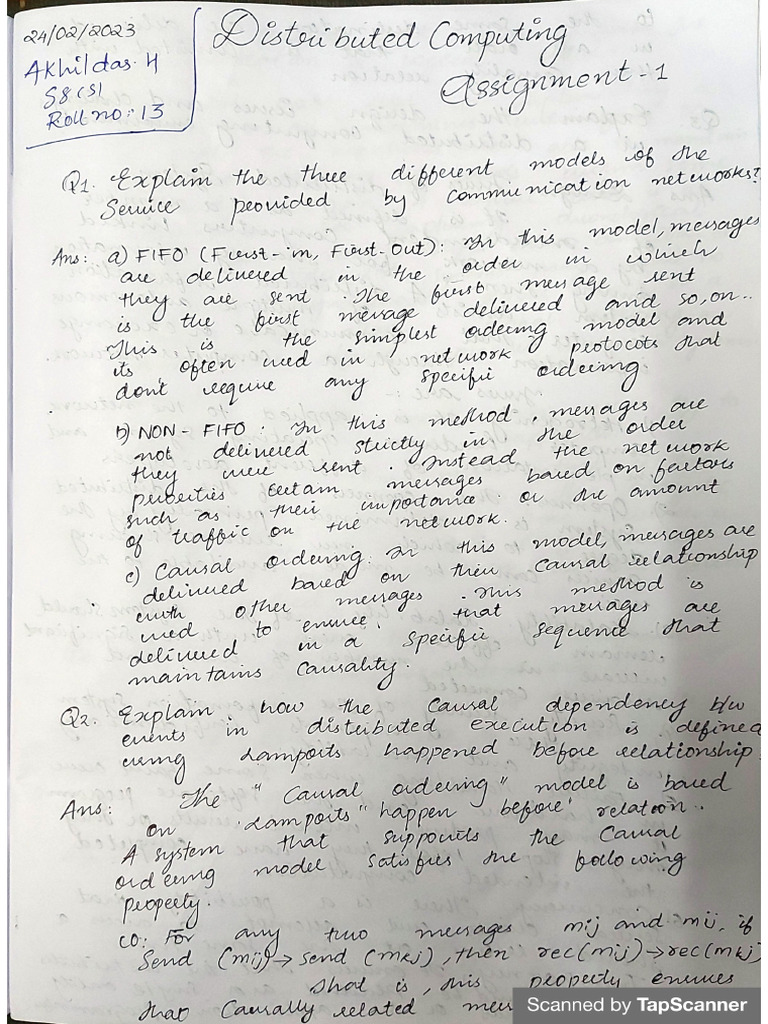 24/02/2023
Akhildas H
S8 CSI
Roll no: 13
Distributed Computing
Assignment - 1
Q1. Explain the three different models of the
Service provided by communication networks?
Ans: a) FIFO (First-in, First-Out): In this model, messages
are delivered in the order in which
they are sent. The first message sent
is the first message delivered and so, on..
This is the simplest ordering model and
its often used in network protocols that
don't require any specific ordering
b) NON - FIFO : In this method, messages are
not delivered strictly in the order
they were sent. Instead the network
certain messages based on factors
such as their importance or the amount
of traffic on the network.
c) Causal ordering: In this model, messages are
delivered based on their causal relationship
with other messages. This method is
used to ensure that messages are
delivered in a specific sequence that
maintains causality.
Q2. Explain how the causal dependency b/w
events in distributed execution is defined
using Lamports happened before relationship.
Ans: The "Causal ordering" model is based
on Lamports "happen before" relation.
A system that supports the Causal
ordering model satisfies the following
property.
CO: For any two messages mij and mij, if
Send (mij) → send (mkj), then rec(mij) → rec(mkj)
That is, this property ensures
that Causally related
Scanned by TapScanner